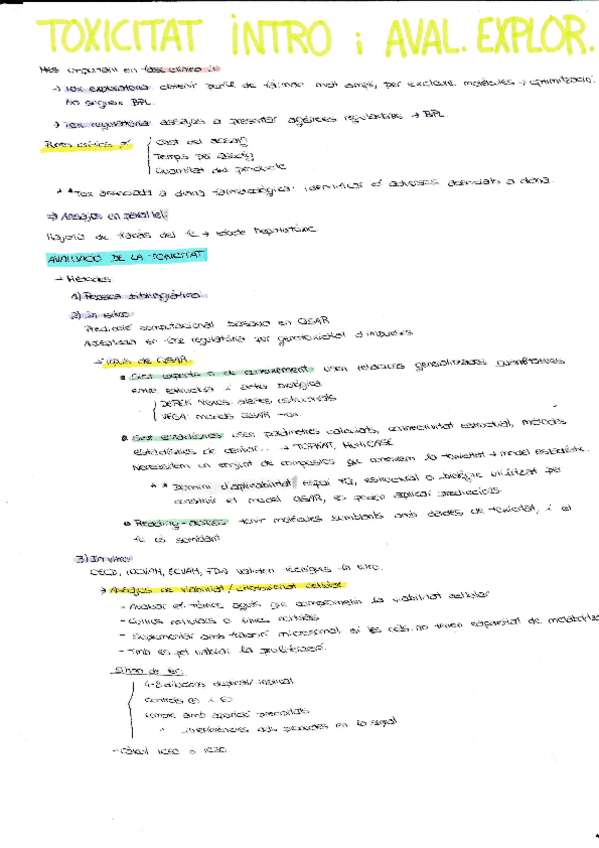 TOXICITAT INTRO i AVAL. EXPLOR.
Més important en fase clínica
→ Tox exploratòria obtenir perfil de fàrmac molt ampli, per excloure molècules → optimització.
No segueix BPL.
→ Tox regulatòria assajos a presentar agències reguladores → BPL
Punts crítics
Cost del assaig
Temps per assaig
Quantitat del producte
** Tox associada a diana farmacològica: identificar ef adversos associats a diana.
⇒ Assajos en paral·lel
Majoria de tòxics del → efecte hepatotòxic.
AVALUACIÓ DE LA TOXICITAT
→ Mètodes
1) Recerca bibliogràfica
2) in silico
Predicció computacional basada en QSAR
Acceptada en fase regulatòria per genotoxicitat d'impureses
→ Tipus de QSAR
Sist experts o de coneixement usen relacions generalitzades quantitatives
entre estructura i activ biològica
DEREK Nexus: alertes estructurals
VEGA: models QSAR
Sist estadístics usen paràmetres calculats, connectivitat estructural, mètodes
estadístics de → TOPKAT, MultiCASE
Necessiten un conjunt de compostos que coneixem la toxicitat → model estadístic.
** Domini d'aplicabilitat espai FQ, estructural o biològic utilitzat per
construir el model QSAR, es poden aplicar prediccions
Reading-across tenir molècules semblants amb dades de toxicitat, i el
és semblant
3) In vitro
OECD, ICCVAM, ECVAM, FDA validen tècniques in vitro.
→ Assajos de viabilitat / citotoxicitat cel·lular
- Avaluar ef tòxics aguts que comprometin la viabilitat cel·lular
- Cultius cel·lulars o línies
- Suplementar amb fracció microsomal si les cèls no tenen capacitat de metabolitz
- Tmb es pot valorar la proliferació.
S'han de fer:
4-8 dilucions
Controls ⊕ i ⊖
Compte amb aparició precipitats
interferències en la senyal
- Càlcul IC50 o